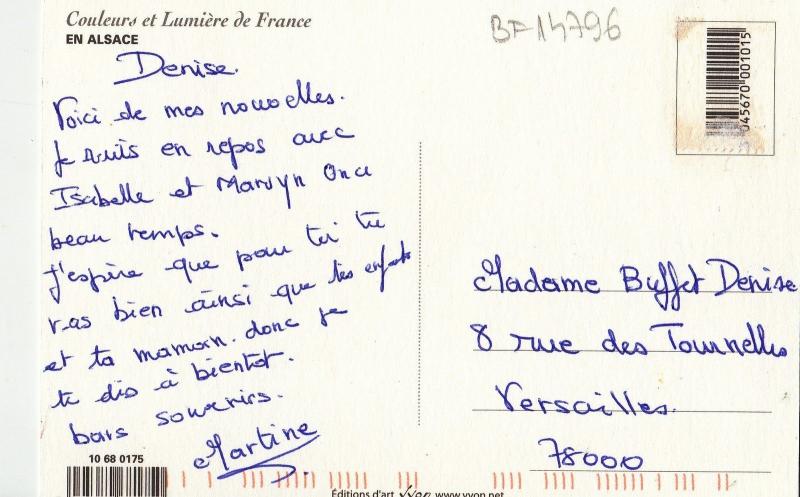 Couleurs et Lumière de France
EN ALSACE
BF14796
045670 001015
Denise.
Voici de mes nouvelles.
Je suis en repos avec
Isabelle et Marvyn On a
beau temps.
J'espère que pour toi tu
vas bien ainsi que tes enfants
et ta maman. donc je
te dis à bientot.
bons souvenirs.
Martine
Madame Buffet Denise
8 rue des Tournelles
Versailles.
78000
10 68 0175
Éditions d'art Yvon www.yvon.net